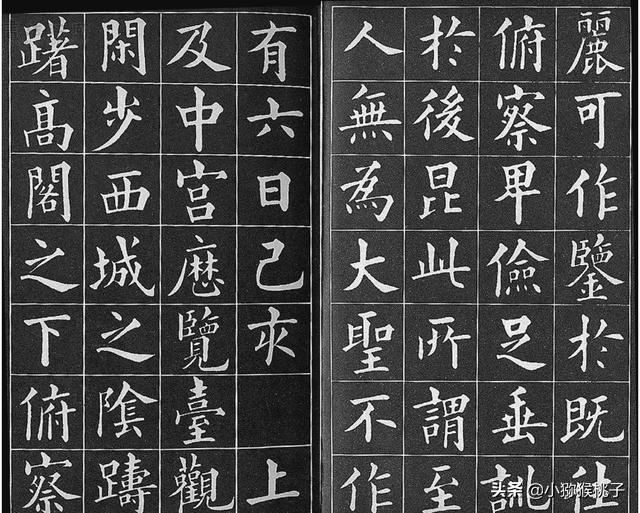 麗可作鑒於既往
俯察卑儉足垂訓
於後昆此所謂至
人無為大聖不作
有六日己亥 上
及中宮歷覽臺觀
閑步西城之陰躊
躇高閣之下俯察
头条 @小猕猴桃子